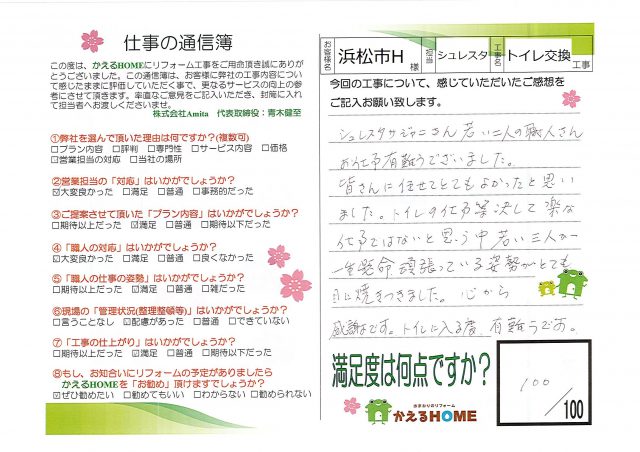 仕事の通信簿
この度は、かえるHOMEにリフォーム工事をご用命頂き誠にありが
とうございました。この通信簿は、お客様に弊社の工事内容につい
て感じたままに評価していただく事で、更なるサービスの向上の参
考にさせて頂きます。率直なご意見をご記入いただき、封筒に入れ
て担当者へお渡しくださいませ。
株式会社Amita 代表取締役：青木健至
①弊社を選んで頂いた理由は何ですか?(複数可)
□プラン内容 □評判 □専門性 □サービス内容 □価格
□営業担当の対応 □当社の場所
②営業担当の「対応」はいかがでしょうか?
☑大変良かった □満足 □普通 □事務的だった
③ご提案させて頂いた「プラン内容」はいかがでしょうか?
□期待以上だった ☑満足 □普通 □期待以下だった
④「職人の対応」はいかがでしょうか?
☑大変良かった □満足 □普通 □良くなかった
⑤「職人の仕事の姿勢」はいかがでしょうか?
□期待以上だった ☑満足 □普通 □雑だった
⑥現場の「管理状況(整理整頓等)」はいかがでしょうか?
□言うことなし ☑配慮があった □普通 □できていない
⑦「工事の仕上がり」はいかがでしょうか?
□期待以上だった ☑満足 □普通 □期待以下だった
⑧もし、お知合いにリフォームの予定がありましたら
かえるHOMEを「お勧め」頂けますでしょうか?
☑ぜひ勧めたい □勧めてもいい □わからない □勧められない
お客様名 浜松市H 様 担当 シュレスタ 工事名 トイレ交換 工事
今回の工事について、感じていただいたご感想を
ご記入お願い致します。
シュレスタサジャニさん 若い二人の職人さん
お仕事有難うございました。
皆さんに任せてとてもよかったと思い
ました。トイレの仕事等決して楽な
仕事ではないと思う中 若い三人が
一生懸命頑張っている姿勢がとても
目に焼きつきました。心から
感謝です。トイレに入る度 有難うです。
満足度は何点ですか?
100/100
お家まるごとリフォーム
かえるHOME